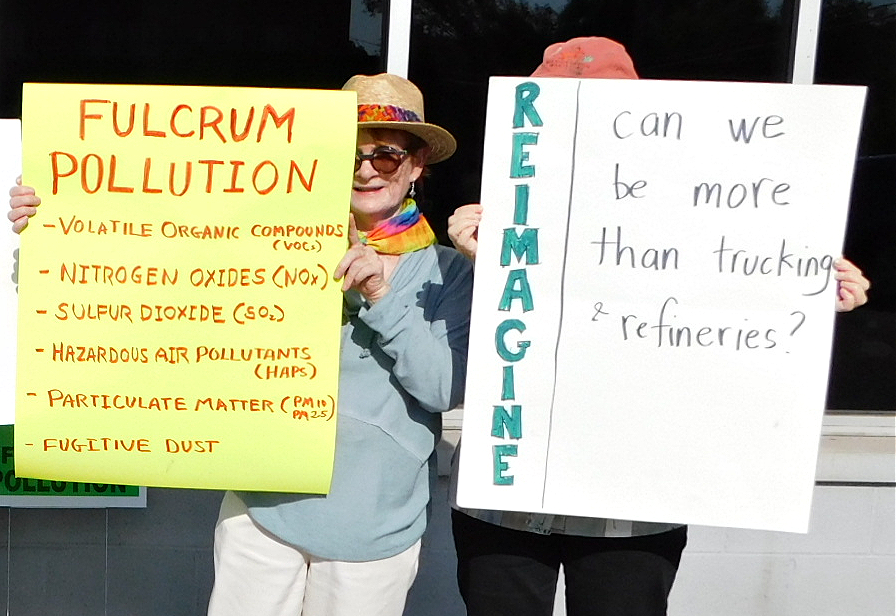 FULCRUM
POLLUTION
- VOLATILE ORGANIC COMPOUNDS
(VOCs)
- NITROGEN OXIDES (NOx)
- SULFUR DIOXIDE (SO₂)
- HAZARDOUS AIR POLLUTANTS
(HAPS)
- PARTICULATE MATTER (PM 10
PM 2.5)
- FUGITIVE DUST
POLLUTION
REIMAGINE
can we
be more
than trucking
& refineries?